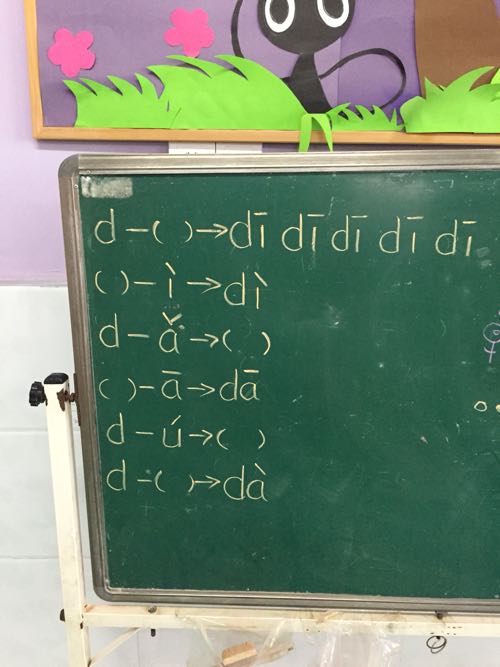 d-( )→dī dī dī dī dī
( )-ì→dì
d-ǎ→( )
( )-ā→dā
d-ú→( )
d-( )→dà